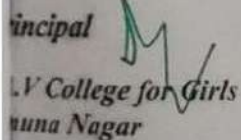 incipal
.V College for Girls
una Nagar